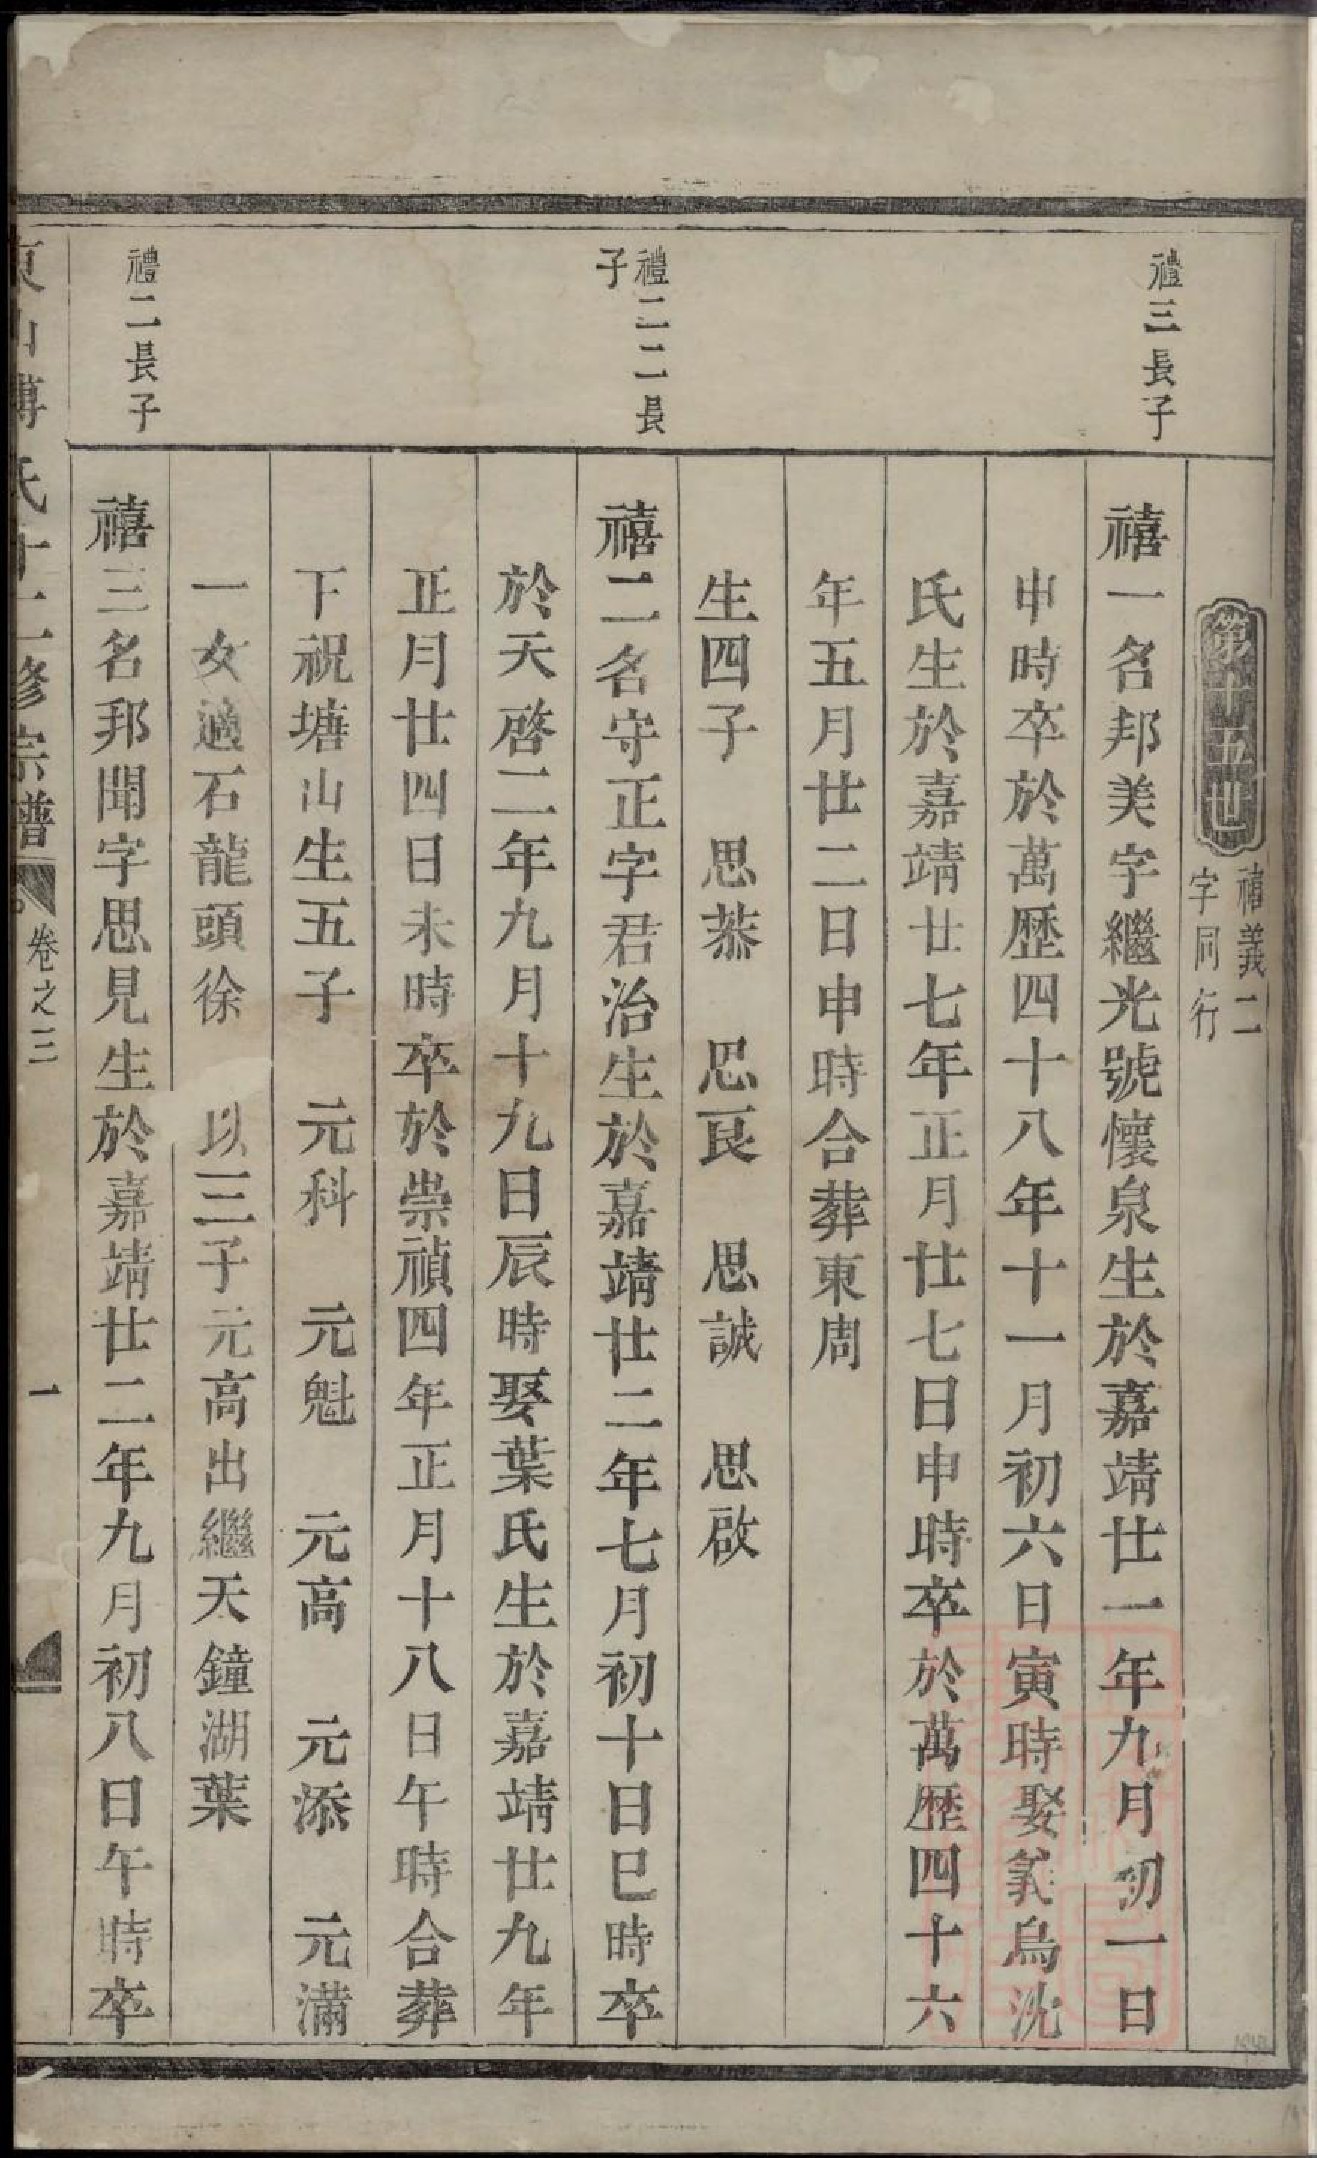 第十五世
禧義二
字同行
禮三長子
禧一名邦美字繼光號懷泉生於嘉靖廿一年九月初一日
申時卒於萬歷四十八年十一月初六日寅時娶義烏沈
氏生於嘉靖廿七年正月廿七日申時卒於萬歷四十六
年五月廿二日申時合葬東周
生四子 思恭 思艮 思誠 思啟
禮二二長
子
禧二名守正字君治生於嘉靖廿二年七月初十日巳時卒
於天啓二年九月十九日辰時娶葉氏生於嘉靖廿九年
正月廿四日未時卒於崇禎四年正月十八日午時合葬
下祝塘山生五子 元科 元魁 元高 元添 元滿
一女適石龍頭徐 以三子元高出繼天鐘湖葉
禮二長子
禧三名邦聞字思見生於嘉靖廿二年九月初八日午時卒
東山傅氏十二修宗譜 卷之三 一